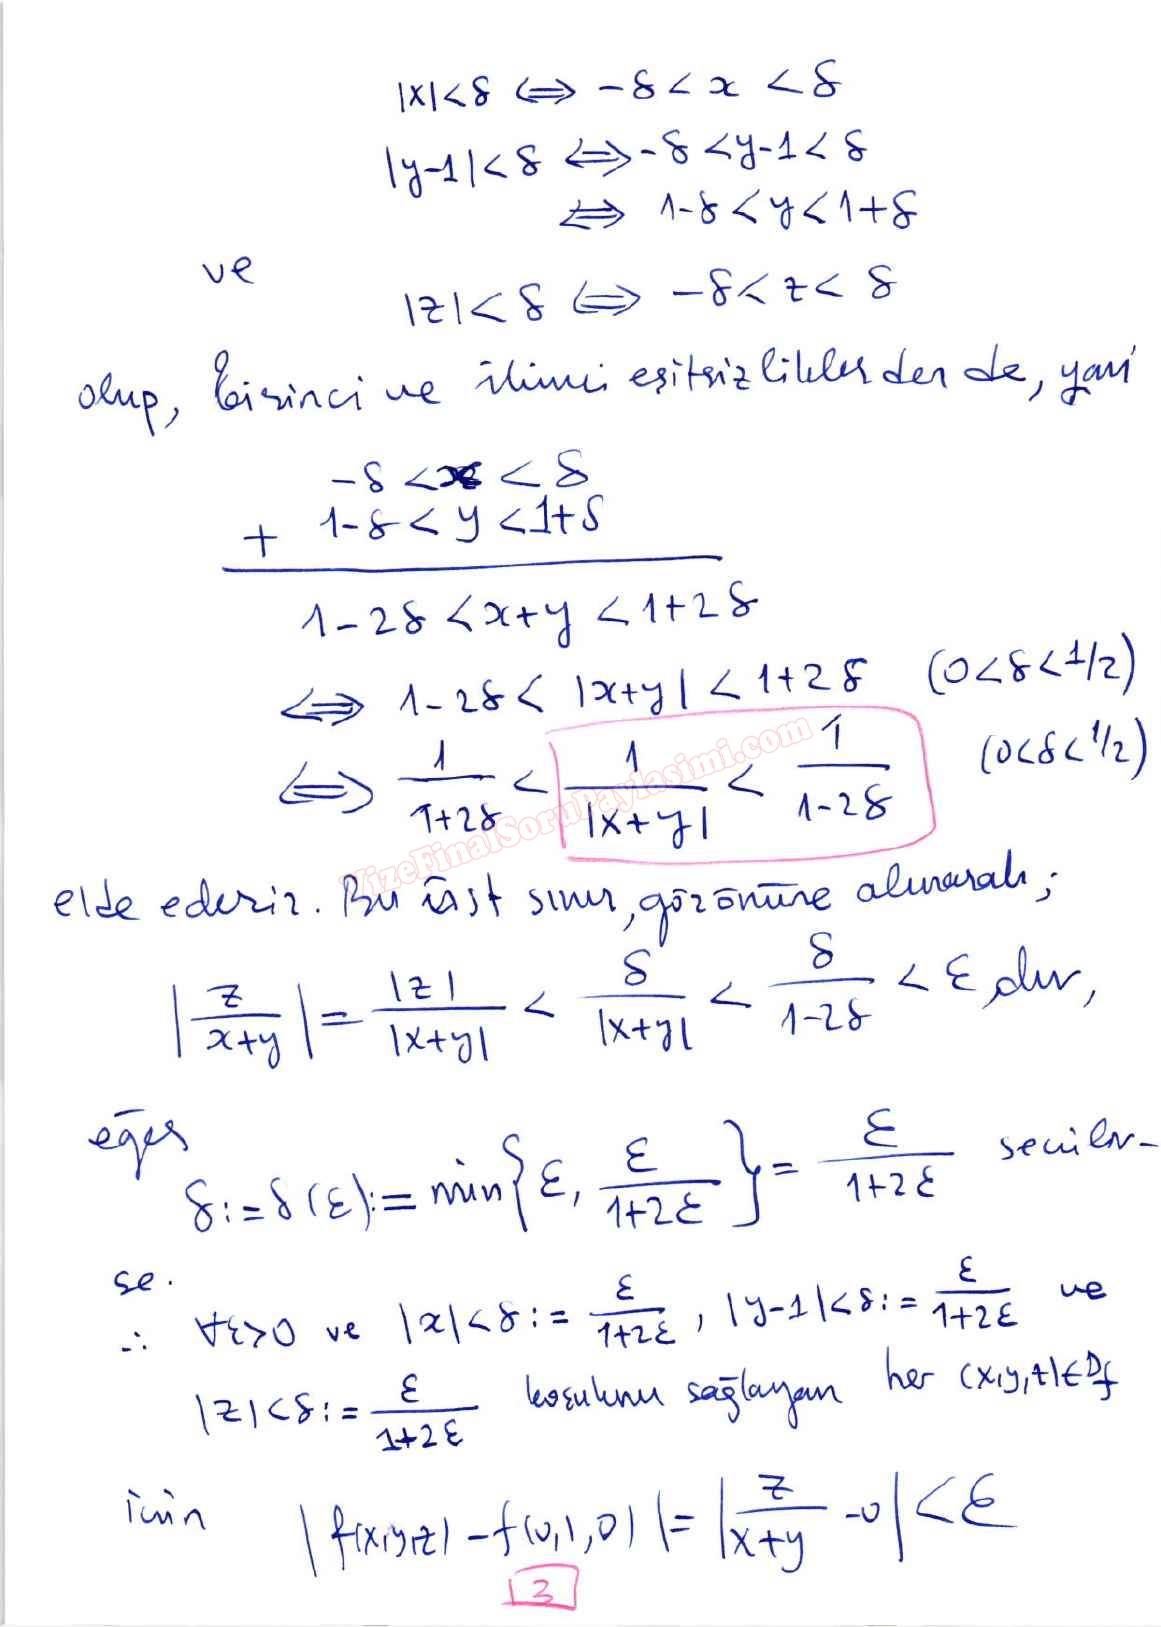 |x|<δ ⟺ -δ < x < δ
|y-1|<δ ⟺ -δ < y-1 < δ
⟺ 1-δ < y < 1+δ
ve
|z|<δ ⟺ -δ < z < δ
olup, birinci ve ikinci eşitsizliklerden de, yani
-δ < x < δ
+ 1-δ < y < 1+δ
1-2δ < x+y < 1+2δ
⟺ 1-2δ < |x+y| < 1+2δ (0<δ<1/2)
⟺ 1/(1+2δ) < 1/|x+y| < 1/(1-2δ) (0<δ<1/2)
VizeFinalSoruPaylasimi.com
elde ederiz. Bu üst sınır, gözönüne alınarak;
|z/(x+y)| = |z|/|x+y| < δ/|x+y| < δ/(1-2δ) < ε dır,
eğer
δ := δ(ε) := min{ε, ε/(1+2ε)} = ε/(1+2ε) seçilir-
se.
∴ ∀ε>0 ve |x|<δ := ε/(1+2ε), |y-1|<δ := ε/(1+2ε) ve
|z|<δ := ε/(1+2ε) koşulunu sağlayan her (x,y,z)∈Df
için |f(x,y,z) - f(0,1,0)| = |z/(x+y) - 0| < ε
3